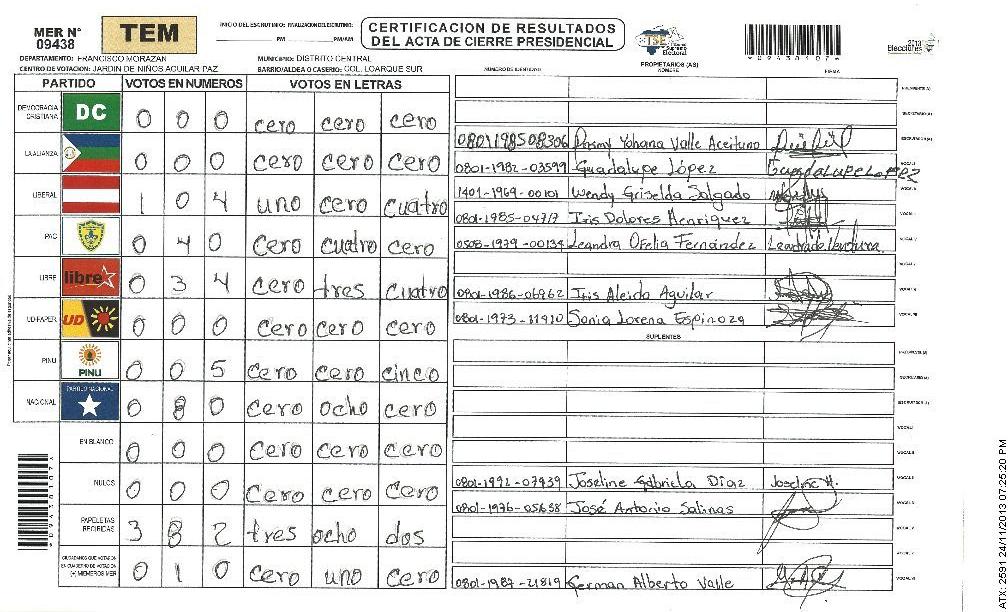 MER N° 09438
TEM
INICIO DEL ESCRUTINIO: FINALIZACION DEL ESCRUTINIO:
PM PM/AM
CERTIFICACION DE RESULTADOS
DEL ACTA DE CIERRE PRESIDENCIAL
TSE Tribunal Supremo Electoral
2013 Elecciones
*09438107*
DEPARTAMENTO: FRANCISCO MORAZAN MUNICIPIO: DISTRITO CENTRAL
CENTRO DE VOTACION: JARDIN DE NIÑOS AGUILAR PAZ BARRIO/ALDEA O CASERIO: COL. LOARQUE SUR
NUMERO DE IDENTIDAD PROPIETARIOS (AS) NOMBRE FIRMA
PARTIDO VOTOS EN NUMEROS VOTOS EN LETRAS
DEMOCRACIA CRISTIANA DC 0 0 0 cero cero cero
LA ALIANZA 0 0 0 cero cero cero
LIBERAL 1 0 4 uno cero cuatro
PAC 0 4 0 cero cuatro cero
LIBRE libre 0 3 4 cero tres cuatro
UD-FAPER UD 0 0 0 cero cero cero
PINU PINU 0 0 5 cero cero cinco
NACIONAL PARTIDO NACIONAL 0 8 0 cero ocho cero
EN BLANCO 0 0 0 cero cero cero
NULOS 0 0 0 cero cero cero
PAPELETAS RECIBIDAS 3 8 2 tres ocho dos
CIUDADANOS QUE VOTARON EN CUADERNO DE VOTACION (+) MIEMBROS MER 0 1 0 cero uno cero
0801198508306 Dasmy Yohana Valle Aceituno
0801-1982-03599 Guadalupe López Guadalupe Lopez
1401-1969-00101 Wendy Griselda Salgado
0801-1985-04717 Iris Dolores Henriquez
0508-1979-00134 Leandra Ofelia Fernández
0801-1986-06962 Iris Aleida Aguilar
0801-1973-11910 Sonia Lorena Espinoza
SUPLENTES
0801-1992-07939 Joseline Gabriela Díaz Joseline H.
0801-1976-05658 José Antonio Salinas
0801-1987-21819 German Alberto Valle
*09438107*
ATX: 2591 24/11/2013 07:25:20 PM